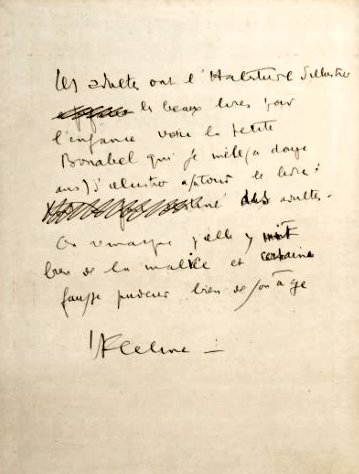 Les adultes ont l'Habitude d'illustrer
les beaux livres pour
l'enfance voici la petite
Bonabel qui je mêle (a douze
ans) s'illustrer le livre :
des adultes.
On remarque qu'elle y met
bien de la malice et certaine
fausse pudeur bien de son âge
LFCeline